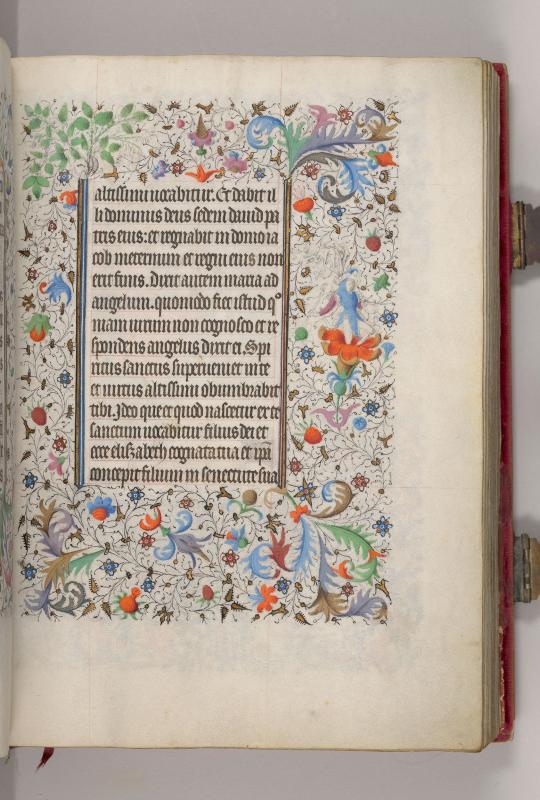 altissimi vocabitur. Et dabit il
li dominus deus sedem david pa
tris eius: et regnabit in domo ia
cob in eternum et regni eius non
erit finis. Dixit autem maria ad
angelum. quomodo fiet istud qº
niam virum non cognosco et re
spondens angelus dixit ei. Spi
ritus sanctus superveniet in te
et virtus altissimi obumbrabit
tibi. Ideo que et quod nascetur ex te
sanctum vocabitur filius dei et
ecce elisabeth cognata tua et ipa
concepit filium in senectute sua